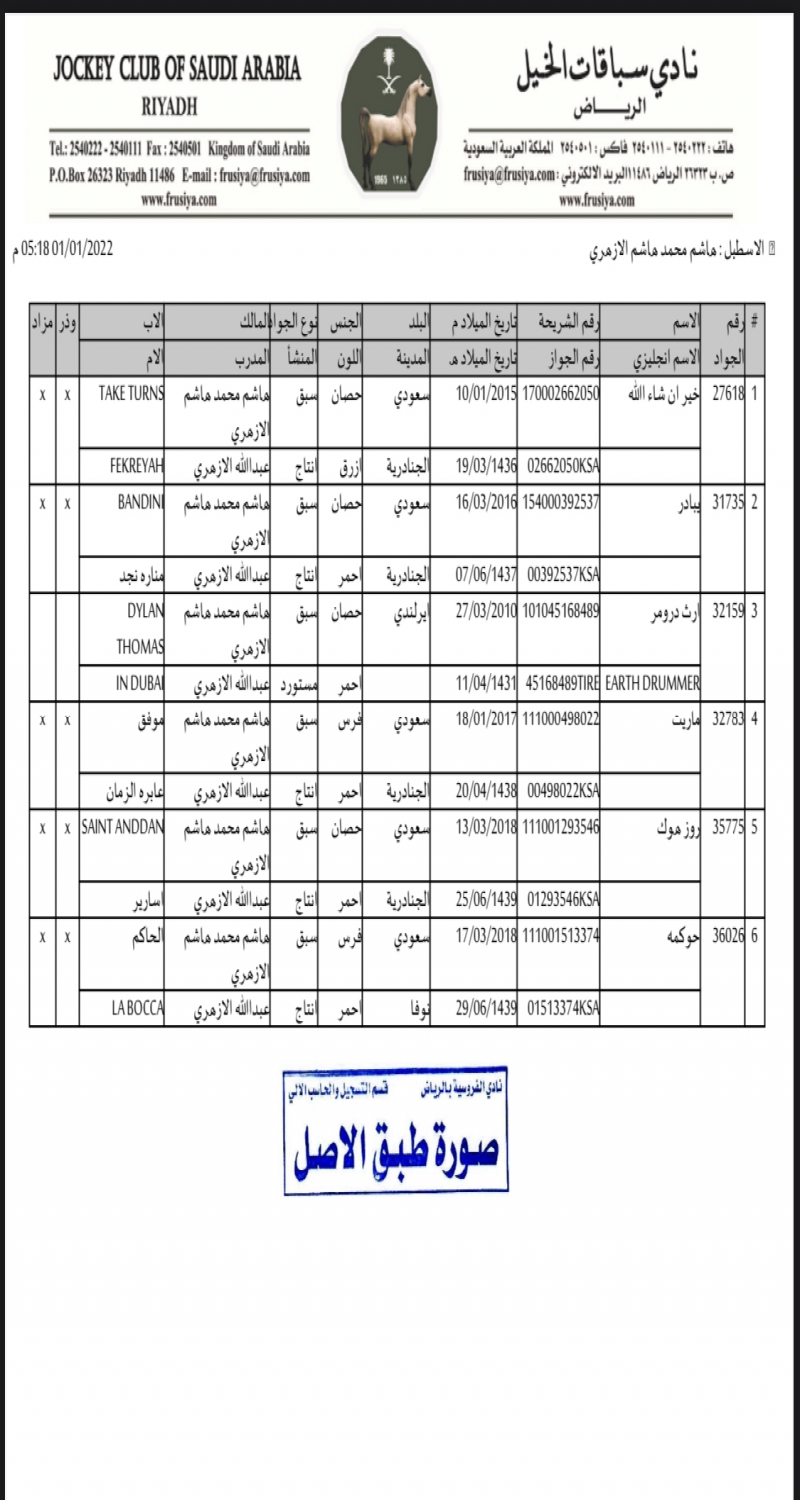 JOCKEY CLUB OF SAUDI ARABIA
RIYADH
Tel.: 2540222 - 2540111 Fax : 2540501 Kingdom of Saudi Arabia
P.O.Box 26323 Riyadh 11486 E-mail : frusiya@frusiya.com
www.frusiya.com
1965 ١٣٨٥
نادي سباقات الخيل
الرياض
هاتف : ٢٥٤٠٢٢٢ - ٢٥٤٠١١١ فاكس : ٢٥٤٠٥٠١ المملكة العربية السعودية
ص.ب ٢٦٣٢٣ الرياض ١١٤٨٦ البريد الالكتروني : frusiya@frusiya.com
www.frusiya.com
الاسطبل : هاشم محمد هاشم الازهري
01/01/2022 05:18 م
# رقم الاسم رقم الشريحة تاريخ الميلاد م البلد الجنس نوع الجواد المالك الاب وذر مزاد
الجواد الاسم انجليزي رقم الجواز تاريخ الميلاد هـ المدينة اللون المنشأ المدرب الام
1 27618 خير ان شاء الله 170002662050 10/01/2015 سعودي حصان سبق هاشم محمد هاشم TAKE TURNS x x
الازهري
02662050KSA 19/03/1436 الجنادرية ازرق انتاج عبدالله الازهري FEKREYAH
2 31735 يبادر 154000392537 16/03/2016 سعودي حصان سبق هاشم محمد هاشم BANDINI x x
الازهري
00392537KSA 07/06/1437 الجنادرية احمر انتاج عبدالله الازهري مناره نجد
3 32159 ارث درومر 101045168489 27/03/2010 ايرلندي حصان سبق هاشم محمد هاشم DYLAN
الازهري THOMAS
EARTH DRUMMER 45168489TIRE 11/04/1431 احمر مستورد عبدالله الازهري IN DUBAI
4 32783 ماريت 111000498022 18/01/2017 سعودي فرس سبق هاشم محمد هاشم موفق x x
الازهري
00498022KSA 20/04/1438 الجنادرية احمر انتاج عبدالله الازهري عابره الزمان
5 35775 روز هوك 111001293546 13/03/2018 سعودي حصان سبق هاشم محمد هاشم SAINT ANDDAN x x
الازهري
01293546KSA 25/06/1439 الجنادرية احمر انتاج عبدالله الازهري اسارير
6 36026 حوكمه 111001513374 17/03/2018 سعودي فرس سبق هاشم محمد هاشم الحاكم x x
الازهري
01513374KSA 29/06/1439 نوفا احمر انتاج عبدالله الازهري LA BOCCA
نادي الفروسية بالرياض قسم التسجيل والحاسب الالي
صورة طبق الاصل